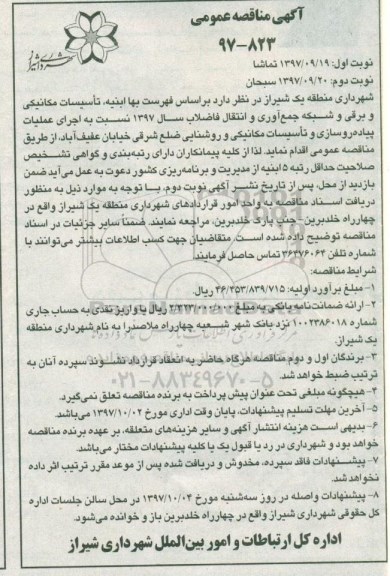 آگهی مناقصه عمومی
۹۷-۸۲۳
نوبت اول: ۱۳۹۷/۰۹/۱۹ تماشا
نوبت دوم: ۱۳۹۷/۰۹/۲۰ سبحان
شهرداری منطقه یک شیراز در نظر دارد براساس فهرست بها ابنیه، تأسیسات مکانیکی
و برقی و شبکه جمع‌آوری و انتقال فاضلاب سال ۱۳۹۷ نسبت به اجرای عملیات
پیاده‌روسازی و تأسیسات مکانیکی و روشنایی ضلع شرقی خیابان عفیف‌آباد، از طریق
مناقصه عمومی اقدام نماید. لذا از کلیه پیمانکاران دارای رتبه‌بندی و گواهی تشخیص
صلاحیت حداقل رتبه ۵ ابنیه از مدیریت و برنامه‌ریزی کشور دعوت به عمل می‌آید ضمن
بازدید از محل، پس از تاریخ نشر آگهی نوبت دوم، با توجه به موارد ذیل به منظور
دریافت اسناد مناقصه به واحد امور قراردادهای شهرداری منطقه یک شیراز واقع در
چهارراه خلدبرین- جنب پارک خلدبرین، مراجعه نمایند. ضمناً سایر جزئیات در اسناد
مناقصه توضیح داده شده است. متقاضیان جهت کسب اطلاعات بیشتر می‌توانند با
شماره تلفن ۳۶۴۷۶۰۶۴ تماس حاصل فرمایند.
شرایط مناقصه:
۱- مبلغ برآورد اولیه: ۴۶/۴۵۳/۸۳۹/۷۱۵ ریال.
۲- ارائه ضمانت‌نامه بانکی به مبلغ ۲/۳۲۳/۰۰۰/۰۰۰ ریال یا واریز نقدی به حساب جاری
شماره ۱۰۰۲۳۸۶۰۱۸ نزد بانک شهر شعبه چهارراه ملاصدرا به نام شهرداری منطقه
یک شیراز.
۳- برندگان اول و دوم مناقصه هرگاه حاضر به انعقاد قرارداد نشوند سپرده آنان به
ترتیب ضبط خواهد شد.
۴- هیچگونه مبلغی تحت عنوان پیش پرداخت به برنده مناقصه تعلق نمی‌گیرد.
۵- آخرین مهلت تسلیم پیشنهادات، پایان وقت اداری مورخ ۱۳۹۷/۱۰/۰۲ می‌باشد.
۶- بدیهی است هزینه انتشار آگهی و سایر هزینه‌های متعلقه، بر عهده برنده مناقصه
خواهد بود و شهرداری در رد یا قبول یک یا کلیه پیشنهادات مختار می‌باشد.
۷- پیشنهادات فاقد سپرده، مخدوش و دریافت شده پس از موعد مقرر ترتیب اثر داده
نخواهد شد.
۸- پیشنهادات واصله در روز سه‌شنبه مورخ ۱۳۹۷/۱۰/۰۴ در محل سالن جلسات اداره
کل حقوقی شهرداری شیراز واقع در چهارراه خلدبرین باز و خوانده می‌شود.
اداره کل ارتباطات و امور بین‌الملل شهرداری شیراز
۰۲۱-۸۸۳۴۹۶۷۰-۵